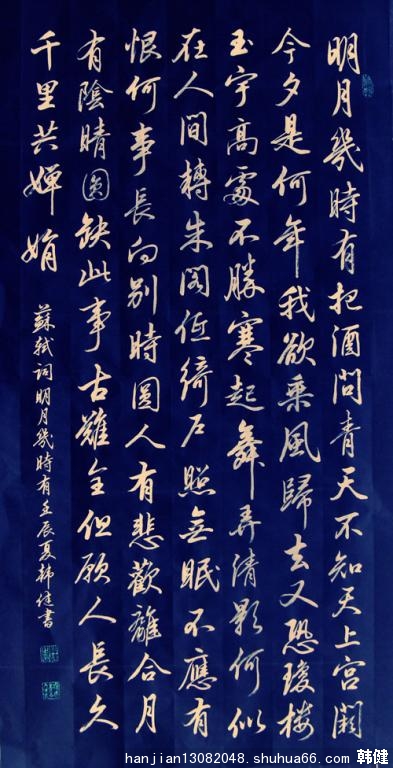 明月幾時有把酒問青天不知天上宮闕
今夕是何年我欲乘風歸去又恐瓊樓
玉宇高處不勝寒起舞弄清影何似
在人間轉朱閣低綺戶照無眠不應有
恨何事長向別時圓人有悲歡離合月
有陰晴圓缺此事古難全但願人長久
千里共嬋娟
蘇軾詞明月幾時有壬辰夏韓健書
hanjian13082048.shuhua66.com 韩健